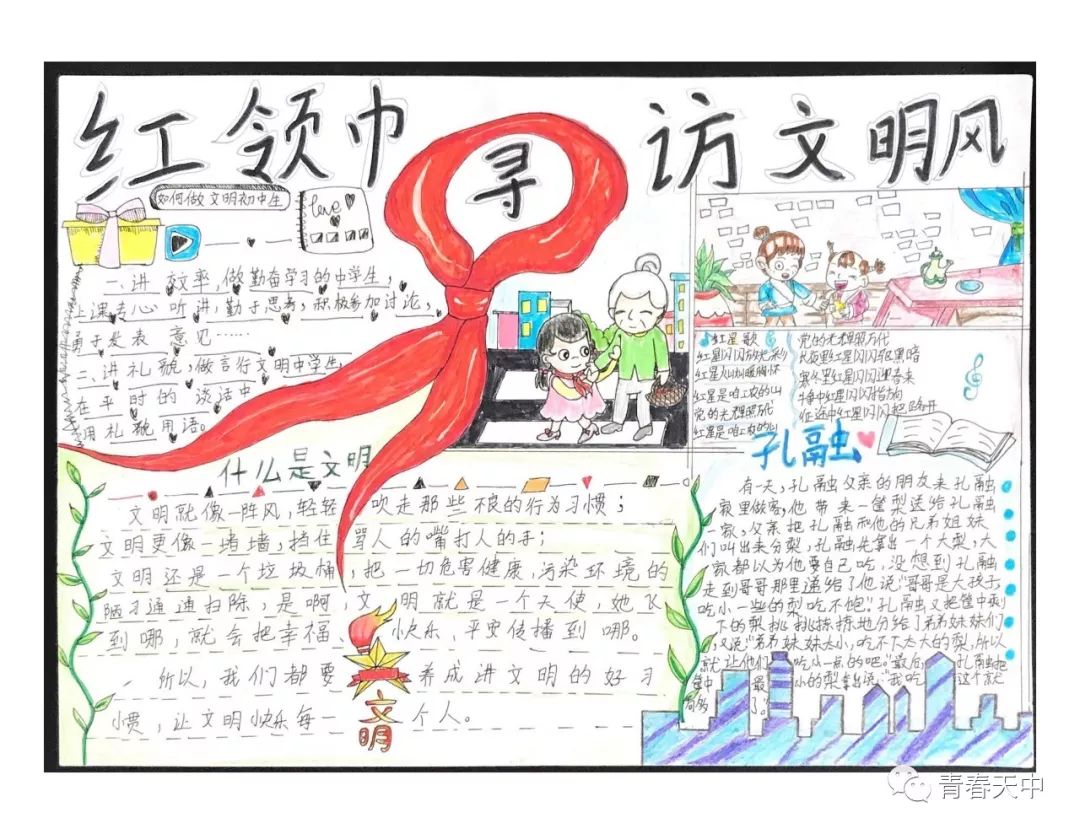 红领巾寻访文明风
如何做文明初中生
love
一、讲效率,做勤奋学习的中学生,
上课专心听讲,勤于思考,积极参加讨论,
勇于发表意见……
二、讲礼貌,做言行文明中学生
在平时的谈话中
用礼貌用语。
什么是文明
文明就像一阵风轻轻吹走那些不良的行为习惯;
文明更像一堵墙,挡住骂人的嘴打人的手;
文明还是一个垃圾桶,把一切危害健康,污染环境的
陋习通通扫除,是啊,文明就是一个天使,她飞
到哪,就会把幸福、快乐、平安传播到哪。
所以,我们都要养成讲文明的好习
惯,让文明快乐每一个人。
文明
红星歌
红星闪闪放光彩
红星灿灿暖胸怀
红星是咱工农的心
党的光辉照万代
红星是咱工农的心
党的光辉照万代
长夜里红星闪闪驱黑暗
寒冬里红星闪闪迎春来
斗争中红星闪闪指方向
征途中红星闪闪把路开
孔融
有一天,孔融父亲的朋友来孔融
家里做客,他带来一筐梨送给孔融
一家,父亲把孔融和他的兄弟姐妹
们叫出来分梨,孔融先拿出一个大梨,大
家都以为他要自己吃,没想到孔融
走到哥哥那里递给了他说“哥哥是大孩子
吃小一些的梨吃不饱”孔融又把筐中剩
下的梨挑挑拣拣地分给了弟弟妹妹们
又说“弟弟妹妹太小,吃不下太大的梨,所以
就让他们吃小一点的吧。”最后,孔融把
筐中最小的梨拿出说:“我吃这个就
够了。”
青春天中